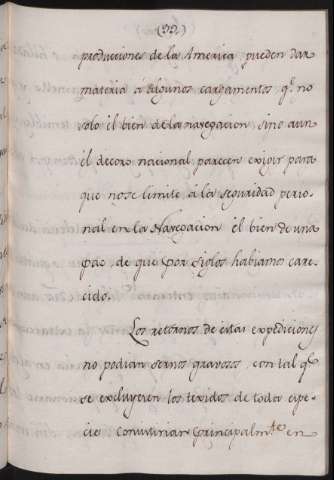 (99)
producciones de la America, pueden dar
materia à algunos cargamentos, qᵉ no
solo él bien de la navegacion, sino aun
él decoro nacional, parecen exigir para
que no se limite à la seguridad perso-
nal en la Navegacion él bien de una
paz, de que por siglos habiamos care-
cido.
Los retornos de estas expediciones
no podian sernos gravosos, con tal qᵉ
se excluyeren los texidos de toda espe-
cie consistirian principalmᵗᵉ en